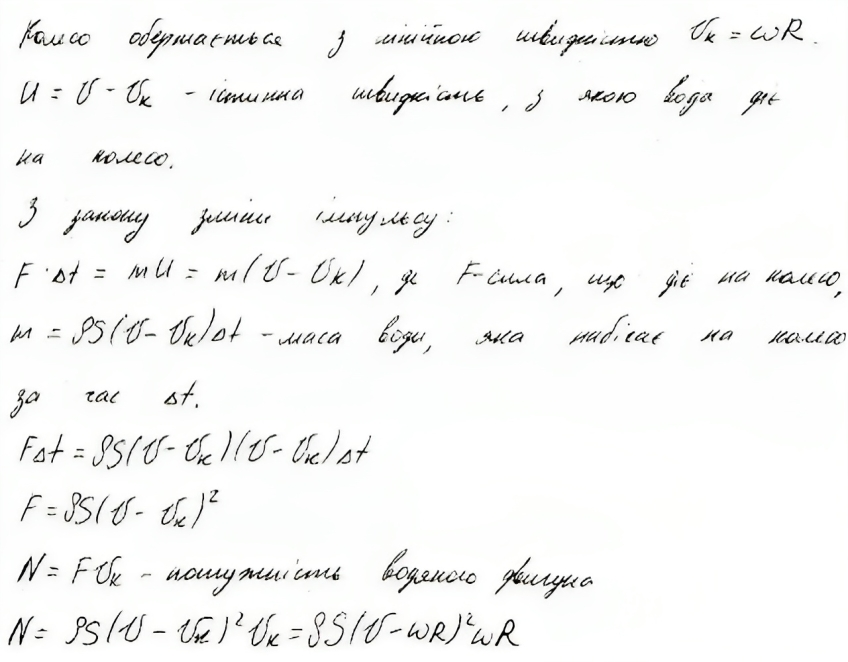 Колесо обертається з лінійною швидкістю υк = ωR.
U = υ - υк - істинна швидкість, з якою вода діє
на колесо.
З закону зміни імпульсу:
F · Δt = mU = m(υ - υк), де F-сила, що діє на колесо,
m = ρS(υ - υк)Δt - маса води, яка набігає на колесо
за час Δt.
FΔt = ρS(υ - υк)(υ - υк)Δt
F = ρS(υ - υк)²
N = Fυк - потужність водяного двигуна
N = ρS(υ - υк)²υк = ρS(υ - ωR)²ωR